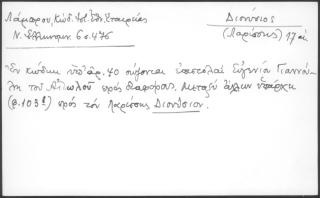 Λάμπρου, Κώδ. Ἱστ. Ἐθν. Ἑταιρείας
Ν. Ἑλληνομν. 6 σ. 476
Διονύσιος
(Λαρίσσης) 17 αἰ
Ἐν κώδικι ὑπ' ἀρ. 70 σώζονται ἐπιστολαὶ Εὐγενίου Γιαννού-
λη τοῦ Αἰτωλοῦ πρὸς διαφόρους. Μεταξὺ ἄλλων ὑπάρχει
(φ. 103) πρὸς τὸν Λαρίσσης Διονύσιον.